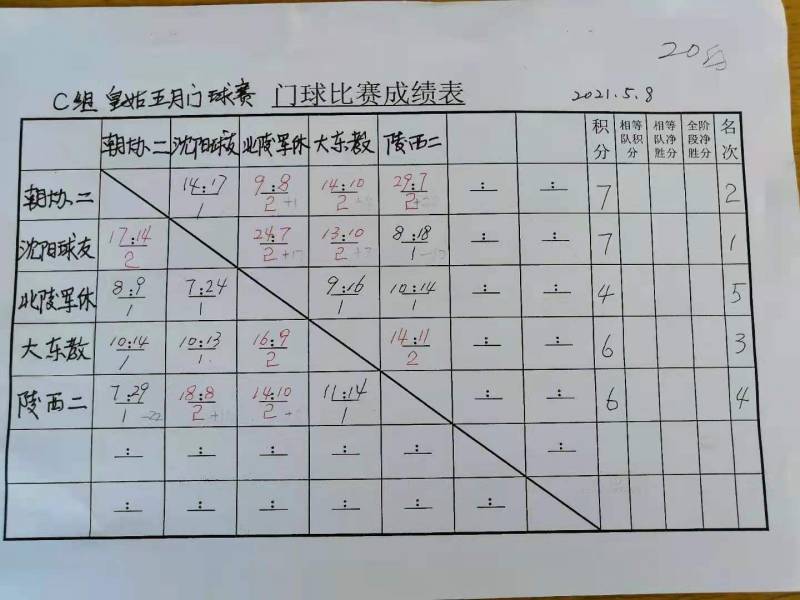 20分
C组 皇姑五月门球赛 门球比赛成绩表 2021.5.8
朝协二 沈阳球友 北陵军休 大东教 陵西二 积分 相等队积分 相等队净胜分 全阶段净胜分 名次
朝协二 14:17 1 9:8 2 +1 14:10 2 29:7 2 +22 : : 7 2
沈阳球友 17:14 2 24:7 2 +17 13:10 2 +3 8:18 1 : : 7 1
北陵军休 8:9 1 7:24 1 9:16 1 10:14 1 : : 4 5
大东教 10:14 1 10:13 1 16:9 2 14:11 2 : : 6 3
陵西二 7:29 1 -22 18:8 2 14:10 2 11:14 1 : : 6 4
: : : : : :
: : : : : :